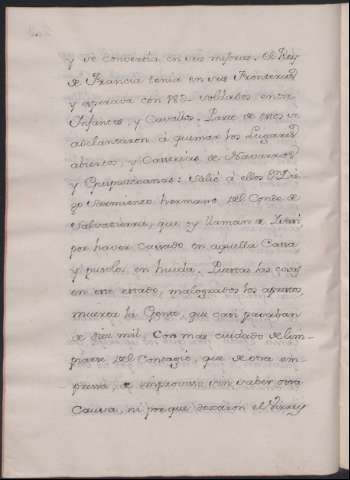 y se convertia en sus mejoras. El Rey
de Francia tenia en sus Fronteras
y esperava con soldados entre
Infantes, y Cavallos. Parte de ellos se
adelantaron á quemar los Lugares
abiertos, y Caserias de Navarros
y Guipuzcoanos: Salió á ellos Dn Die
go Sarmiento hermano del Conde de
Salvatierra, que oy llaman de
por haver Cassado en aquella Cassa
y pusolos en huida. Puestas las cosas
en este estado, malogrados los aprestos,
muerta la Gente, que casi pasaban
de diez mil, Con mas cuidado de lim-
piarse del Contagio, que de otra em-
presa, de improviso sin saber otra
Causa, ni por que dexaron el Virrey